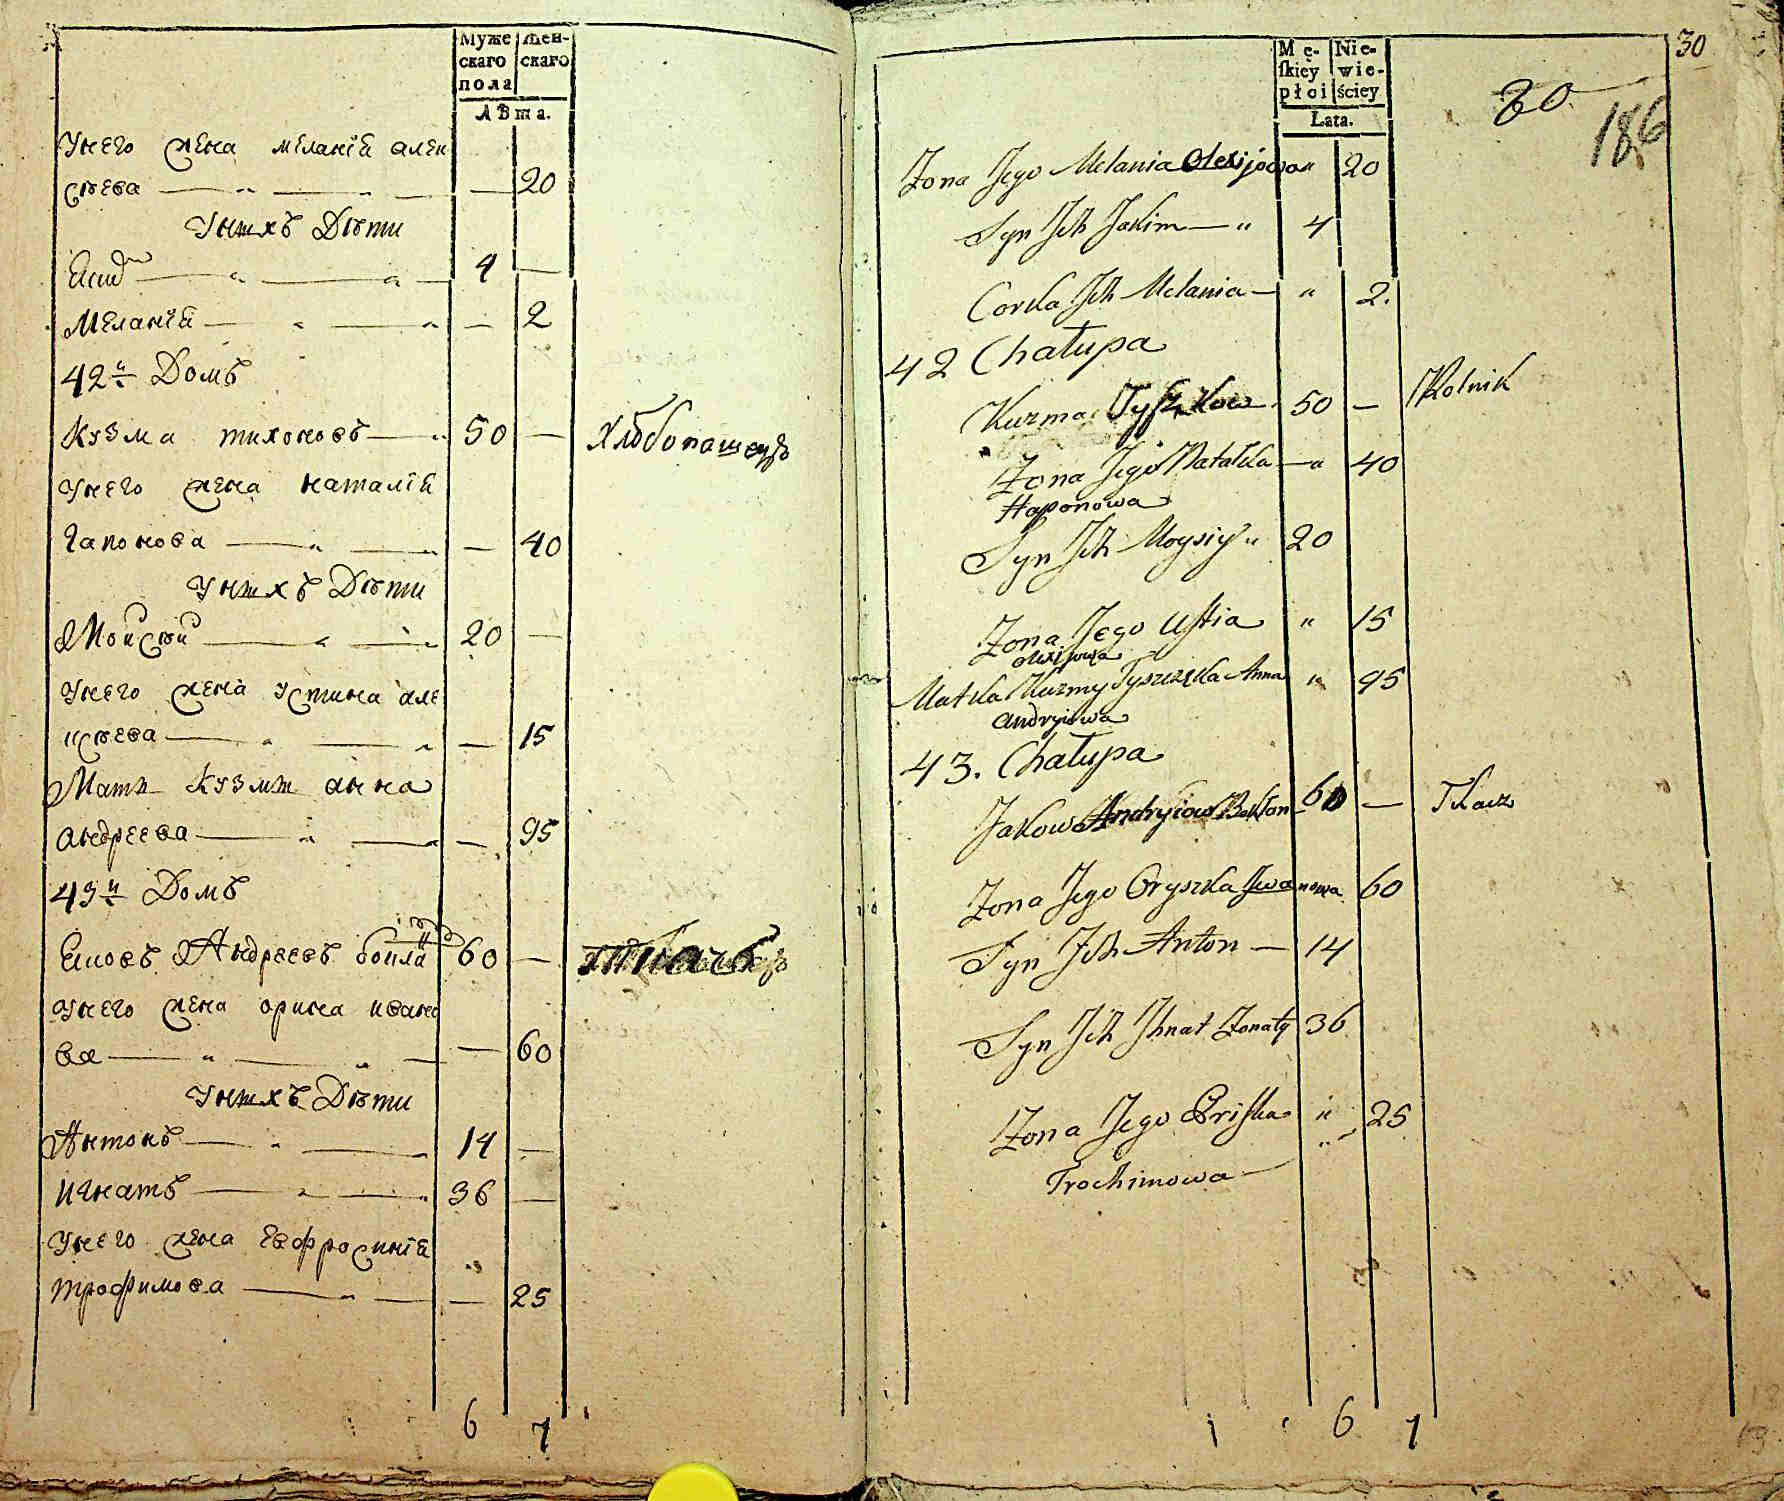 Муже
скаго
пола
Жен-
скаго
Лѣта.
Унего жена меланїя алек
сѣева 20
Унихъ Дѣти
Еким 4
Меланїя 2
42й Домъ
Кузма тихоновъ 50 — Хлѣбопашецъ
Унего жена наталїя
Гапонова — 40
Унихъ Дѣти
Мойсѣй 20 —
Унего жена устина але
ксѣева — 15
Мать Кузми анна
андреева — 95
43й Домъ
Яковъ Андреевъ 60 — ткачъ
Унего жена орина ивано
ва — 60
Унихъ Дѣти
Антонъ 14 —
Игнатъ 36 —
Унего жена Евфросинїя
трофимова — 25
6 7
30
80
186
Mę-
skiey
płci
Nie-
wie-
ściey
Lata.
Zona Jego Melania Olexijowa " 20
Syn Ich Jakim — " 4
Corka Ich Melania — " 2.
42 Chałupa
Kuzma Tyszkow 50 — Rolnik
Zona Jego Natalka — " 40
Haponowa
Syn Ich Moysiy " 20
Zona Jego Ustia " 15
Olexijowa
Matka Kuzmy Tyszczka Anna " 95
Andryiowa
43. Chałupa
Jakow Andryiow 60 — Tkacz
Zona Jego Oryszka Iwanowa 60
Syn Ich Anton — 14
Syn Ich Ihnat Zonaty 36
Zona Jego Priska " 25
Trochimowa
6 7